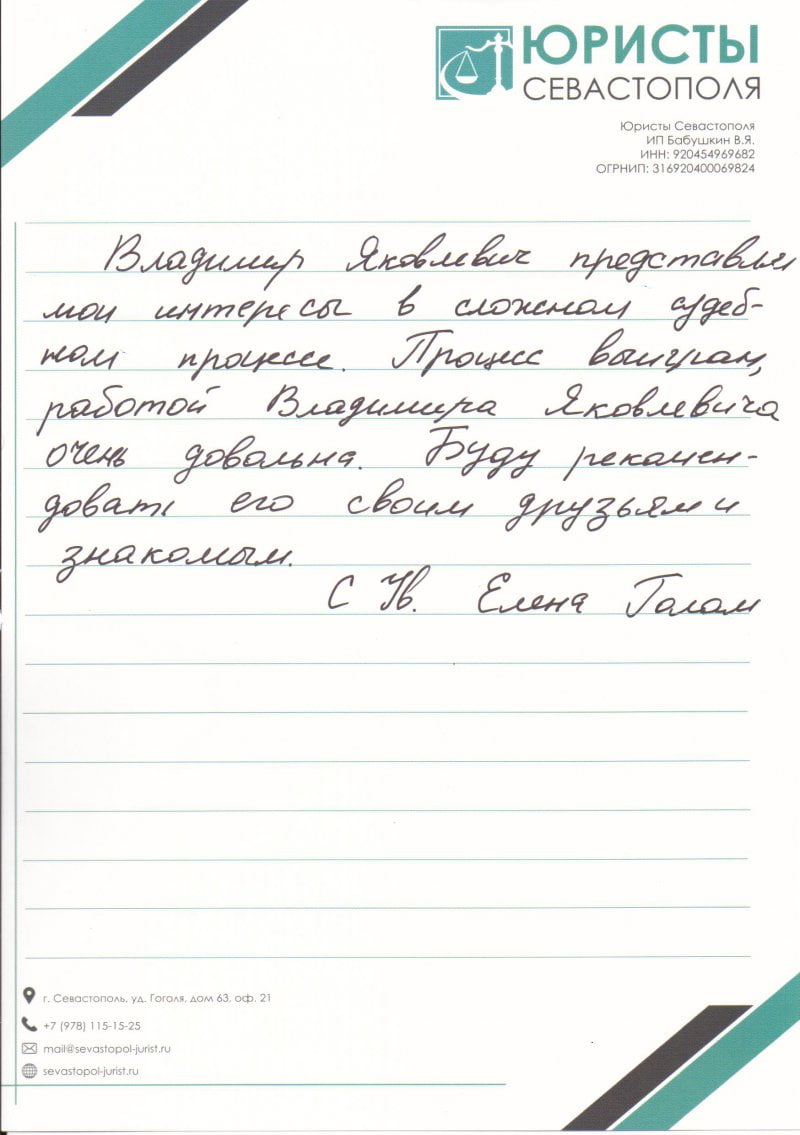 ЮРИСТЫ
СЕВАСТОПОЛЯ
Юристы Севастополя
ИП Бабушкин В.Я.
ИНН: 920454969682
ОГРНИП: 316920400069824
Владимир Яковлевич представлял
мои интересы в сложном судеб-
ном процессе. Процесс выигран,
работой Владимира Яковлевича
очень довольна. Буду рекомен-
довать его своим друзьям и
знакомым.
С Ув. Елена
г. Севастополь, ул. Гоголя, дом 63, оф. 21
+7 (978) 115-15-25
mail@sevastopol-jurist.ru
sevastopol-jurist.ru